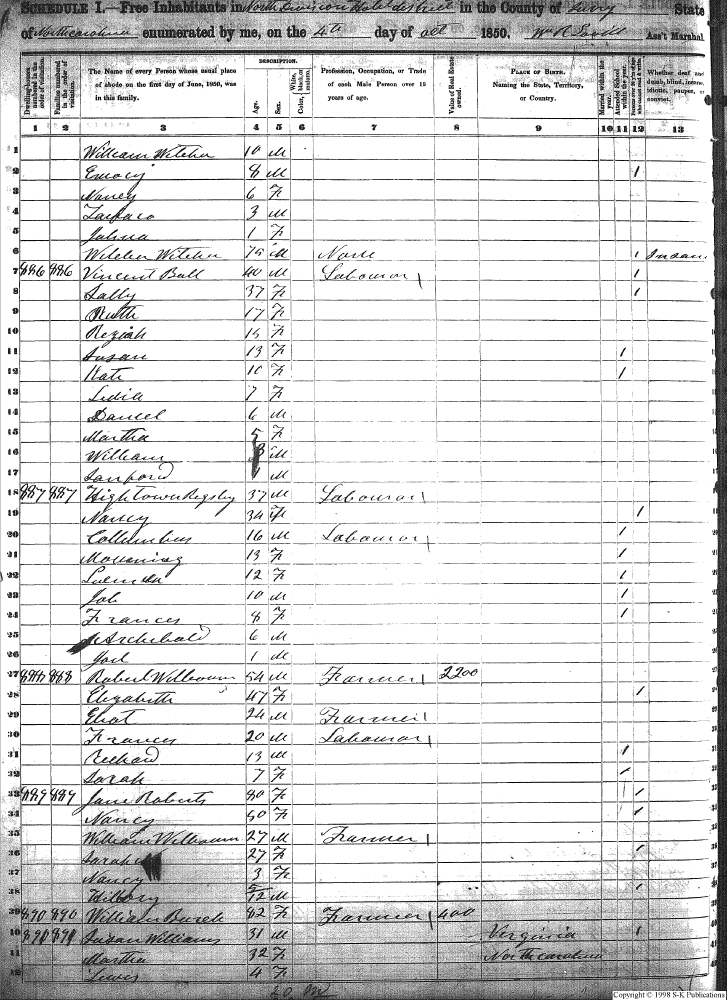 SCHEDULE I.—Free Inhabitants in North Division in the County of Surry State
of North carolina enumerated by me, on the 4th day of oct 1850. Ass't Marshal
DESCRIPTION.
Dwelling-houses numbered in the order of visitation.
Families numbered in the order of visitation.
The Name of every Person whose usual place of abode on the first day of June, 1850, was in this family.
Age.
Sex.
White, black, or mulatto.
Color,
Profession, Occupation, or Trade of each Male Person over 15 years of age.
Value of Real Estate owned.
PLACE OF BIRTH. Naming the State, Territory, or Country.
Married within the year.
Attended School within the year.
Whether deaf and dumb, blind, insane, idiotic, pauper, or convict.
1 2 3 4 5 6 7 8 9 10 11 12 13
1 William Witcher 10 M
2 Emory 8 M /
3 Nancy 6 F
4 3 M
5 1 F
6 Witcher 75 M None / Insane
7 886 886 Vincent Ball 40 M Labourer /
8 Sally 37 F /
9 Ruth 17 F
10 Keziah 15 F
11 Susan 13 F /
12 Kate 10 F /
13 Lidia 7 F
14 Daniel 6 M
15 Martha 5 F
16 William 3 M
17 Sanford 1 M
18 887 887 Hightower 37 M Labourer
19 Nancy 34 F /
20 Collumbus 16 M Labourer /
21 13 F /
22 12 F /
23 Job 10 M /
24 Frances 8 F /
25 Archibald 6 M
26 Joel 1 M
27 888 888 Robert Wilbourn 54 M Farmer 2200
28 Elizabeth 47 F /
29 24 M Farmer
30 Francis 20 M Labourer
31 Richard 13 M /
32 Sarah 7 F /
33 889 889 Jane Roberts 80 F /
34 Nancy 50 F /
35 William Wilbourn 27 M Farmer
36 Sarah 27 F /
37 Nancy 3 F
38 Hillory 5/12 M /
39 890 890 William 82 F Farmer 400
40 891 891 Susan Williams 31 M Virginia /
41 Martha 32 F North carolina
42 Lewis 4 F
20 M
Copyright © 1998 S-K Publications